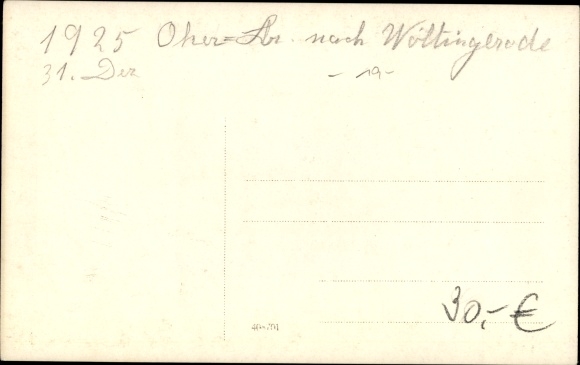 1925 Oker=Br. nach Wöltingerode
31. Dez
- 19 -
30,- €